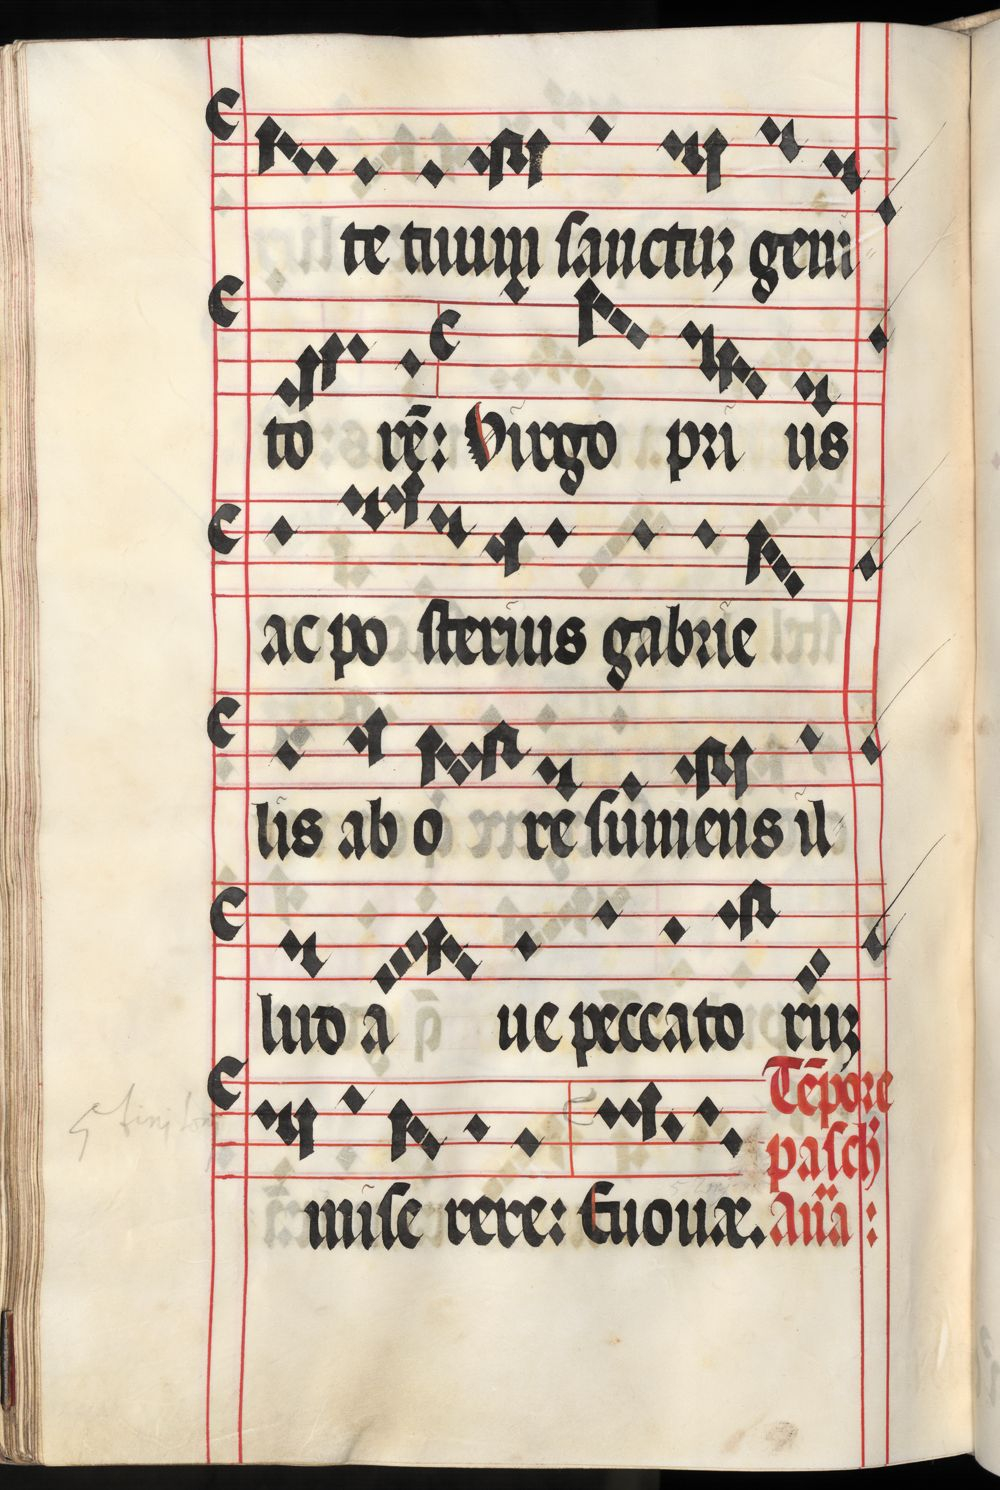 te tuuꝫ sanctuꝫ geni
to rē: Virgo pri us
ac po sterius gabrie
lis ab o re sumens il
lud a ue peccato ruꝫ
mise rere: Euouæ.
Tēpore
pasch
Aña: